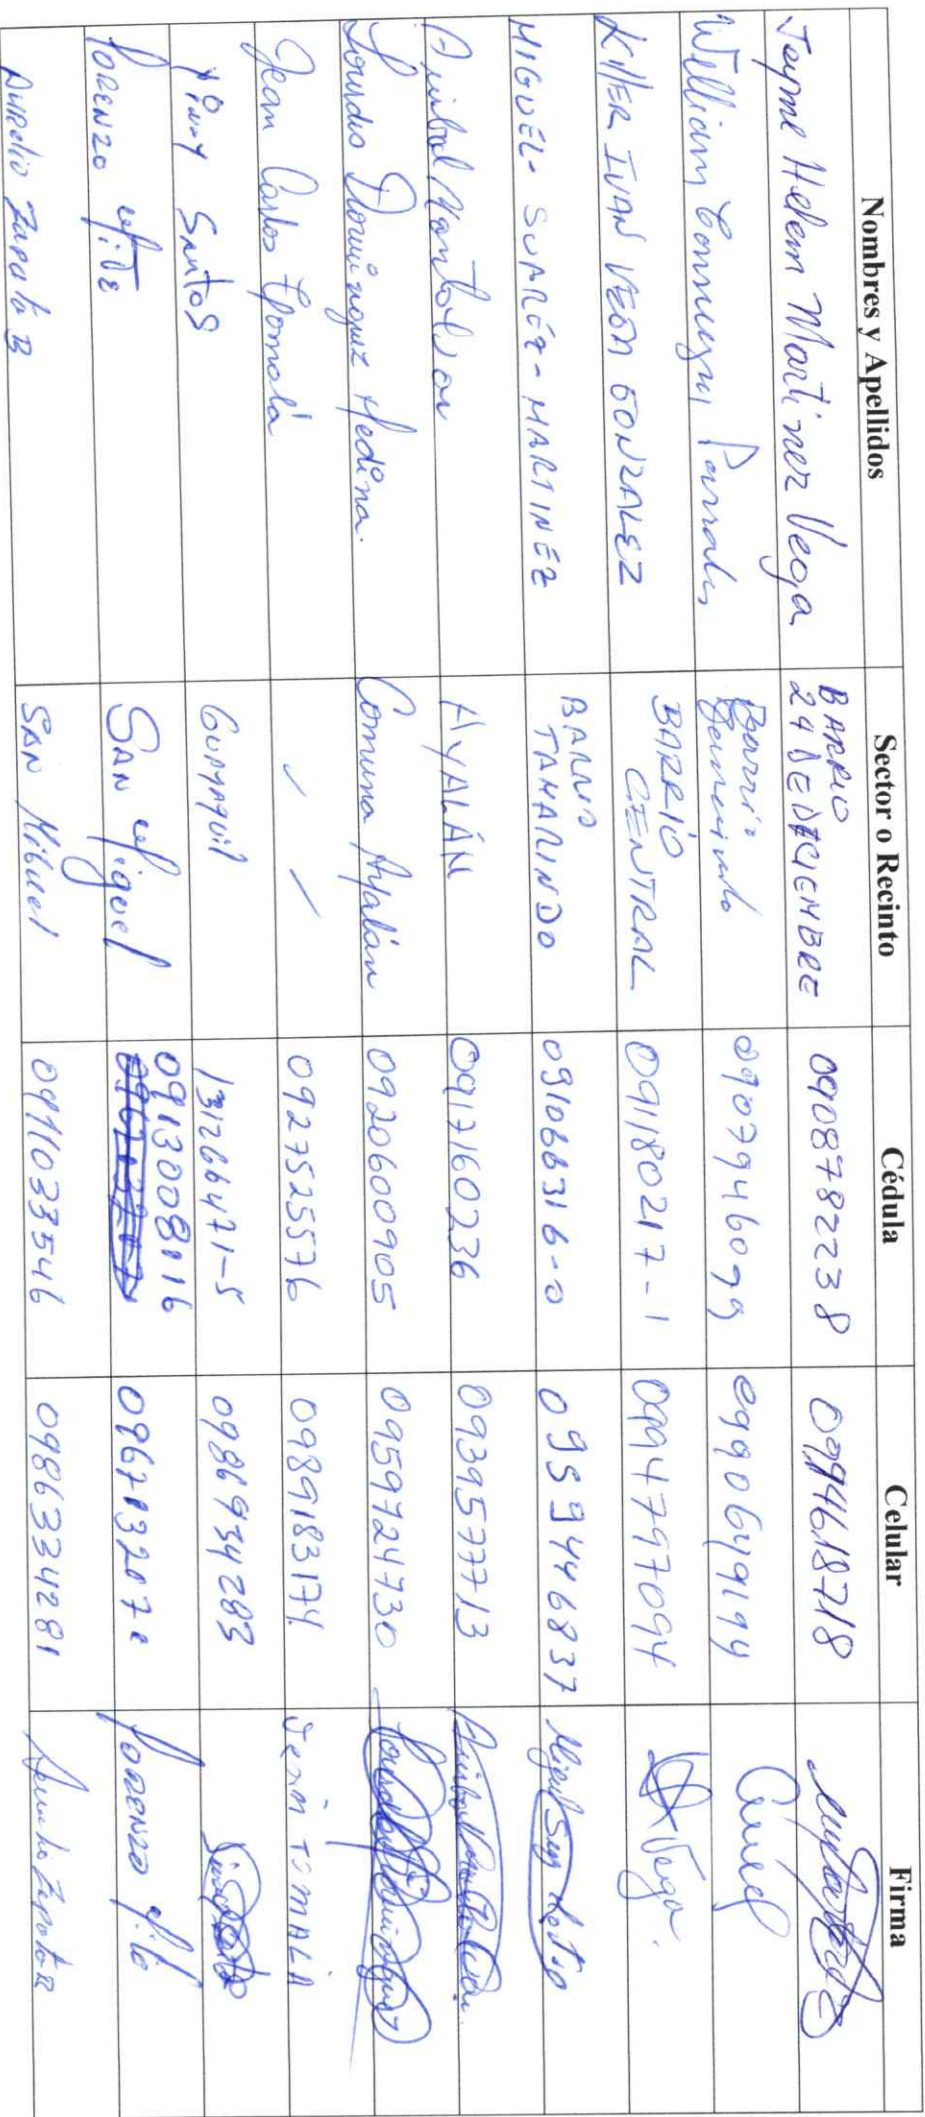 Nombres y Apellidos Sector o Recinto Cédula Celular Firma
Jayme Helem Martinez Vega BARRIO 24 DE DICIEMBRE 0908782238 0994618718
William Barrio 0907946099 0990649194
KillER IVAN VEGA GONZALEZ BARRIO CENTRAL 091180217-1 0994797094 Vega
MIGUEL- SUAREZ- MARTINEZ BARRIO TAMARINDO 091066316-0 0959446837
Anibal AYALÁN 0917160236 0939577713
Lourdes Dominguez Medina. Comuna Ayalán 0920600905 0959724730
Jean Carlos Tomalá / / 0927525576 0989183174 Jean TOMALA
Santos GUAYAQUIL 131266471-5 0986934283
LORENZO SAN Miguel 0913008116 LORENZO
AURELIO Zapata B SAN MIGUEL 0911033546 0986334281